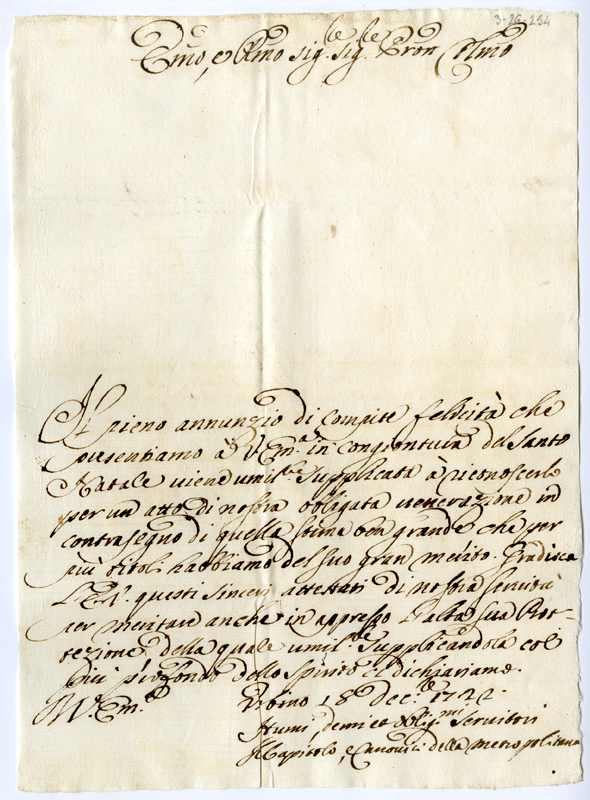 3-26-254
Emo, e Rmo sig.le sig.le Pron Colmo
Il pieno annunzio di compite felicità che
presentiamo à V. Em.a in congiontura del Santo
Natale viene umil.te supplicata à riconoscerlo
per un atto di nostra obligata venerazione in
contrasegno di quella stima ben grande che per
più titoli habbiamo del suo gran merito. Gradisca
L'E.V. questi sinceri attestati di nostra servitù
per meritare anche in appresso l'alta sua Prot-
tezione, della quale umil.te supplicandola col
più profondo dello spirito ci dichiariamo.
D V. Em.a
Urbino 18 Dec.e 1722.
Humi, demi et oblig.mi Servitori
Il Capitolo, e Canonici della Metropolitana